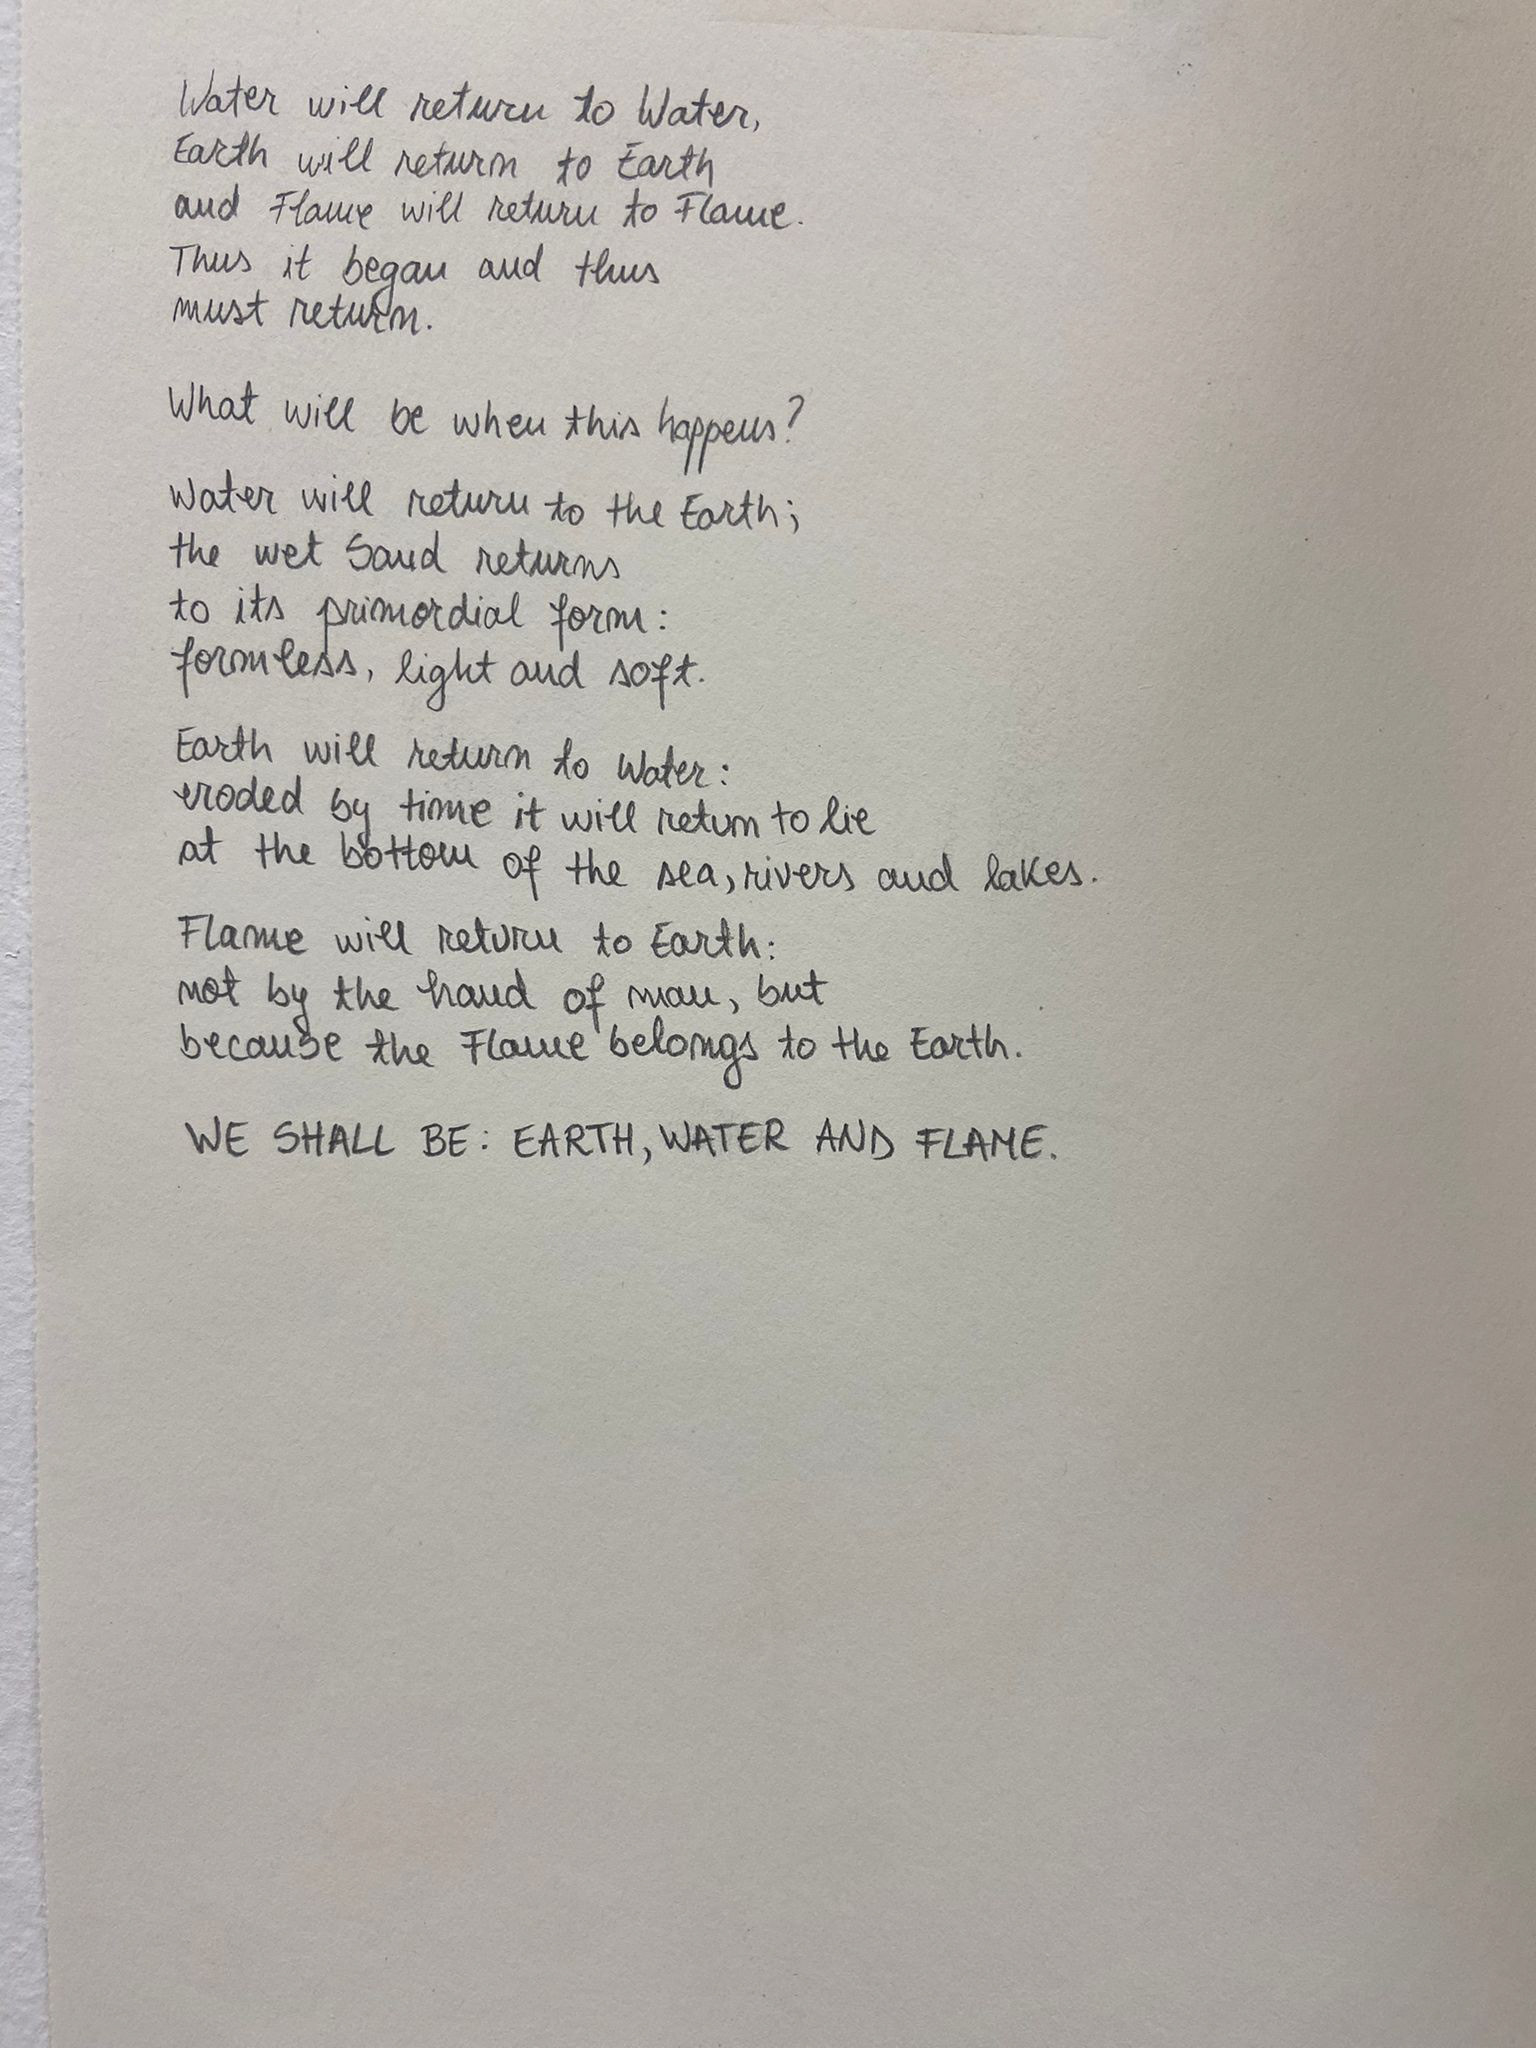 Water will return to Water,
Earth will return to Earth
and Flame will return to Flame.
Thus it began and thus
must return.
What will be when this happens?
Water will return to the Earth;
the wet Sand returns
to its primordial form:
formless, light and soft.
Earth will return to Water:
eroded by time it will return to lie
at the bottom of the sea, rivers and lakes.
Flame will return to Earth:
not by the hand of man, but
because the Flame belongs to the Earth.
WE SHALL BE: EARTH, WATER AND FLAME.